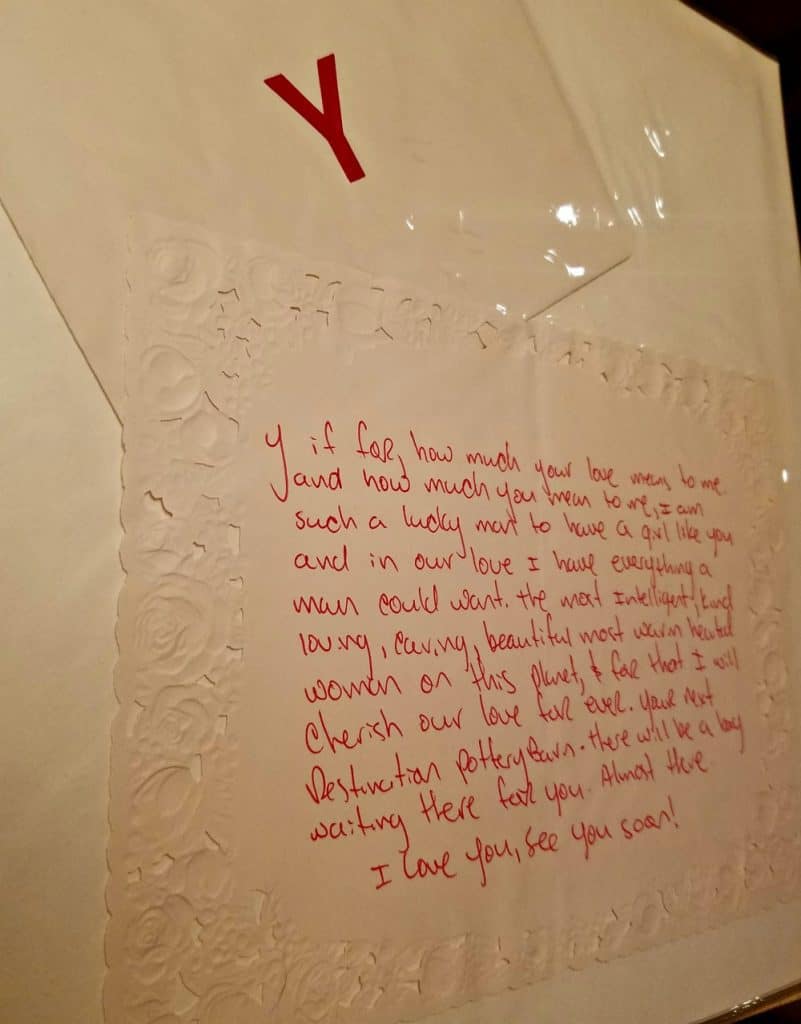 Y
Y if for, how much your love means to me.
and how much you mean to me, I am
such a lucky man to have a girl like you
and in our love I have everything a
man could want. the most Intelligent, kind
loving, caring, beautiful most warm hearted
woman on this planet, & for that I will
Cherish our love for ever. your next
Destination Pottery Barn. there will be a
waiting there for you. Almost there.
I love you, see you soon!